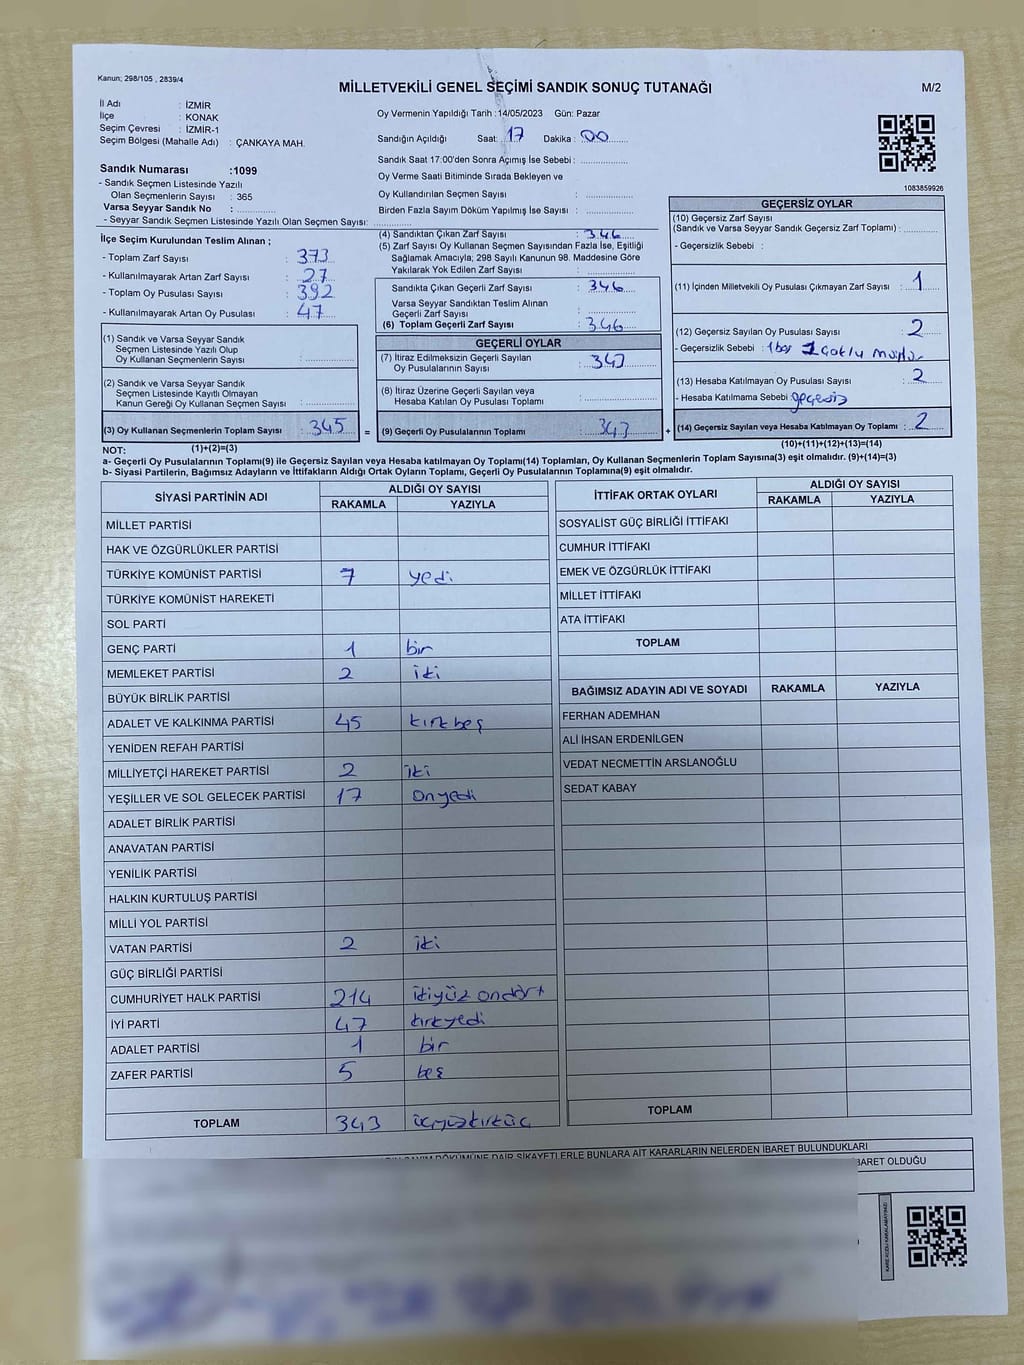 Kanun; 298/105 , 2839/4
MİLLETVEKİLİ GENEL SEÇİMİ SANDIK SONUÇ TUTANAĞI
M/2
İl Adı : İZMİR
İlçe : KONAK
Seçim Çevresi : İZMİR-1
Seçim Bölgesi (Mahalle Adı) : ÇANKAYA MAH.
Oy Vermenin Yapıldığı Tarih :14/05/2023 Gün: Pazar
Sandığın Açıldığı Saat: 17 Dakika : 00
Sandık Saat 17:00'den Sonra Açımış İse Sebebi :
Oy Verme Saati Bitiminde Sırada Bekleyen ve
Oy Kullandırılan Seçmen Sayısı :
Birden Fazla Sayım Döküm Yapılmış İse Sayısı :
1083859926
Sandık Numarası :1099
- Sandık Seçmen Listesinde Yazılı
Olan Seçmenlerin Sayısı : 365
Varsa Seyyar Sandık No :
- Seyyar Sandık Seçmen Listesinde Yazılı Olan Seçmen Sayısı:
İlçe Seçim Kurulundan Teslim Alınan ;
- Toplam Zarf Sayısı : 373
- Kullanılmayarak Artan Zarf Sayısı : 27
- Toplam Oy Pusulası Sayısı : 392
- Kullanılmayarak Artan Oy Pusulası : 47
(1) Sandık ve Varsa Seyyar Sandık
Seçmen Listesinde Yazılı Olup
Oy Kullanan Seçmenlerin Sayısı :
(2) Sandık ve Varsa Seyyar Sandık
Seçmen Listesinde Kayıtlı Olmayan
Kanun Gereği Oy Kullanan Seçmen Sayısı :
(3) Oy Kullanan Seçmenlerin Toplam Sayısı : 345 =
(4) Sandıktan Çıkan Zarf Sayısı : 346
(5) Zarf Sayısı Oy Kullanan Seçmen Sayısından Fazla İse, Eşitliği
Sağlamak Amacıyla; 298 Sayılı Kanunun 98. Maddesine Göre
Yakılarak Yok Edilen Zarf Sayısı :
Sandıkta Çıkan Geçerli Zarf Sayısı : 346
Varsa Seyyar Sandıktan Teslim Alınan
Geçerli Zarf Sayısı :
(6) Toplam Geçerli Zarf Sayısı : 346
GEÇERLİ OYLAR
(7) İtiraz Edilmeksizin Geçerli Sayılan
Oy Pusulalarının Sayısı : 343
(8) İtiraz Üzerine Geçerli Sayılan veya
Hesaba Katılan Oy Pusulası Toplamı :
(9) Geçerli Oy Pusulalarının Toplamı : 343 +
GEÇERSİZ OYLAR
(10) Geçersiz Zarf Sayısı
(Sandık ve Varsa Seyyar Sandık Geçersiz Zarf Toplamı) :
- Geçersizlik Sebebi :
(11) İçinden Milletvekili Oy Pusulası Çıkmayan Zarf Sayısı : 1
(12) Geçersiz Sayılan Oy Pusulası Sayısı : 2
- Geçersizlik Sebebi : 1 boş 1 çoklu mühür
(13) Hesaba Katılmayan Oy Pusulası Sayısı : 2
- Hesaba Katılmama Sebebi geçersiz
(14) Geçersiz Sayılan veya Hesaba Katılmayan Oy Toplamı : 2
(10)+(11)+(12)+(13)=(14)
NOT: (1)+(2)=(3)
a- Geçerli Oy Pusulalarının Toplamı(9) ile Geçersiz Sayılan veya Hesaba katılmayan Oy Toplamı(14) Toplamları, Oy Kullanan Seçmenlerin Toplam Sayısına(3) eşit olmalıdır. (9)+(14)=(3)
b- Siyasi Partilerin, Bağımsız Adayların ve İttifakların Aldığı Ortak Oyların Toplamı, Geçerli Oy Pusulalarının Toplamına(9) eşit olmalıdır.
SİYASİ PARTİNİN ADI ALDIĞI OY SAYISI
RAKAMLA YAZIYLA
MİLLET PARTİSİ
HAK VE ÖZGÜRLÜKLER PARTİSİ
TÜRKİYE KOMÜNİST PARTİSİ 7 yedi
TÜRKİYE KOMÜNİST HAREKETİ
SOL PARTİ
GENÇ PARTİ 1 bir
MEMLEKET PARTİSİ 2 iki
BÜYÜK BİRLİK PARTİSİ
ADALET VE KALKINMA PARTİSİ 45 kırkbeş
YENİDEN REFAH PARTİSİ
MİLLİYETÇİ HAREKET PARTİSİ 2 iki
YEŞİLLER VE SOL GELECEK PARTİSİ 17 onyedi
ADALET BİRLİK PARTİSİ
ANAVATAN PARTİSİ
YENİLİK PARTİSİ
HALKIN KURTULUŞ PARTİSİ
MİLLİ YOL PARTİSİ
VATAN PARTİSİ 2 iki
GÜÇ BİRLİĞİ PARTİSİ
CUMHURİYET HALK PARTİSİ 214 ikiyüz ondört
İYİ PARTİ 47 kırkyedi
ADALET PARTİSİ 1 bir
ZAFER PARTİSİ 5 beş
TOPLAM 343 üçyüzkırküç
İTTİFAK ORTAK OYLARI ALDIĞI OY SAYISI
RAKAMLA YAZIYLA
SOSYALİST GÜÇ BİRLİĞİ İTTİFAKI
CUMHUR İTTİFAKI
EMEK VE ÖZGÜRLÜK İTTİFAKI
MİLLET İTTİFAKI
ATA İTTİFAKI
TOPLAM
BAĞIMSIZ ADAYIN ADI VE SOYADI RAKAMLA YAZIYLA
FERHAN ADEMHAN
ALİ İHSAN ERDENİLGEN
VEDAT NECMETTİN ARSLANOĞLU
SEDAT KABAY
TOPLAM
SAYIM DÖKÜMÜNE DAİR ŞİKAYETLERLE BUNLARA AİT KARARLARIN NELERDEN İBARET BULUNDUKLARI
İBARET OLDUĞU